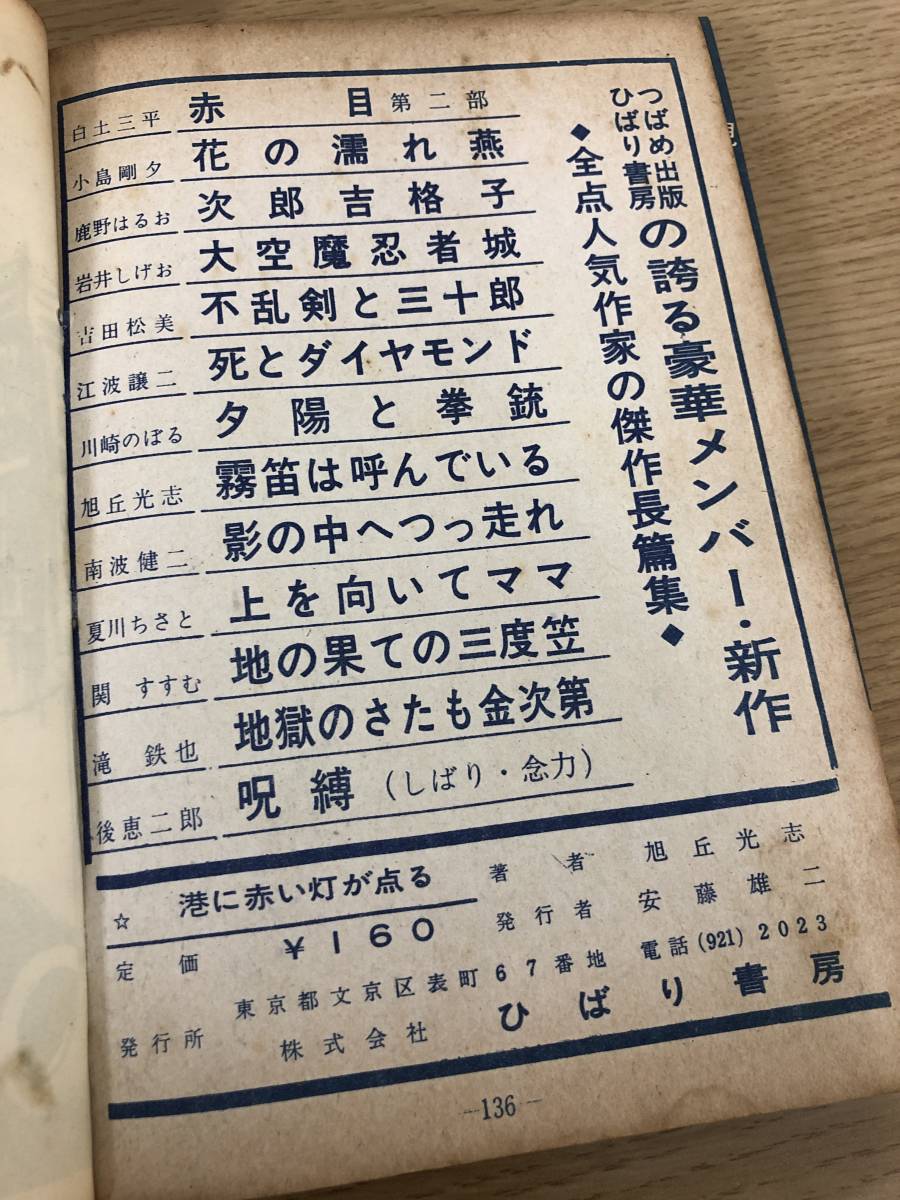 つばめ出版
ひばり書房
の誇る豪華メンバー・新作
◆全点人気作家の傑作長篇集◆
白土三平 赤目 第二部
小島剛夕 花の濡れ燕
鹿野はるお 次郎吉格子
岩井しげお 大空魔忍者城
吉田松美 不乱剣と三十郎
江波譲二 死とダイヤモンド
川崎のぼる 夕陽と拳銃
旭丘光志 霧笛は呼んでいる
南波健二 影の中へつっ走れ
夏川ちさと 上を向いてママ
関 すすむ 地の果ての三度笠
滝 鉄也 地獄のさたも金次第
後恵二郎 呪縛(しばり・念力)
☆ 港に赤い灯が点る
定価 ¥160
著者 旭丘光志
発行者 安藤雄二
東京都文京区表町67番地 電話(921)2023
発行所 株式会社 ひばり書房
—136—